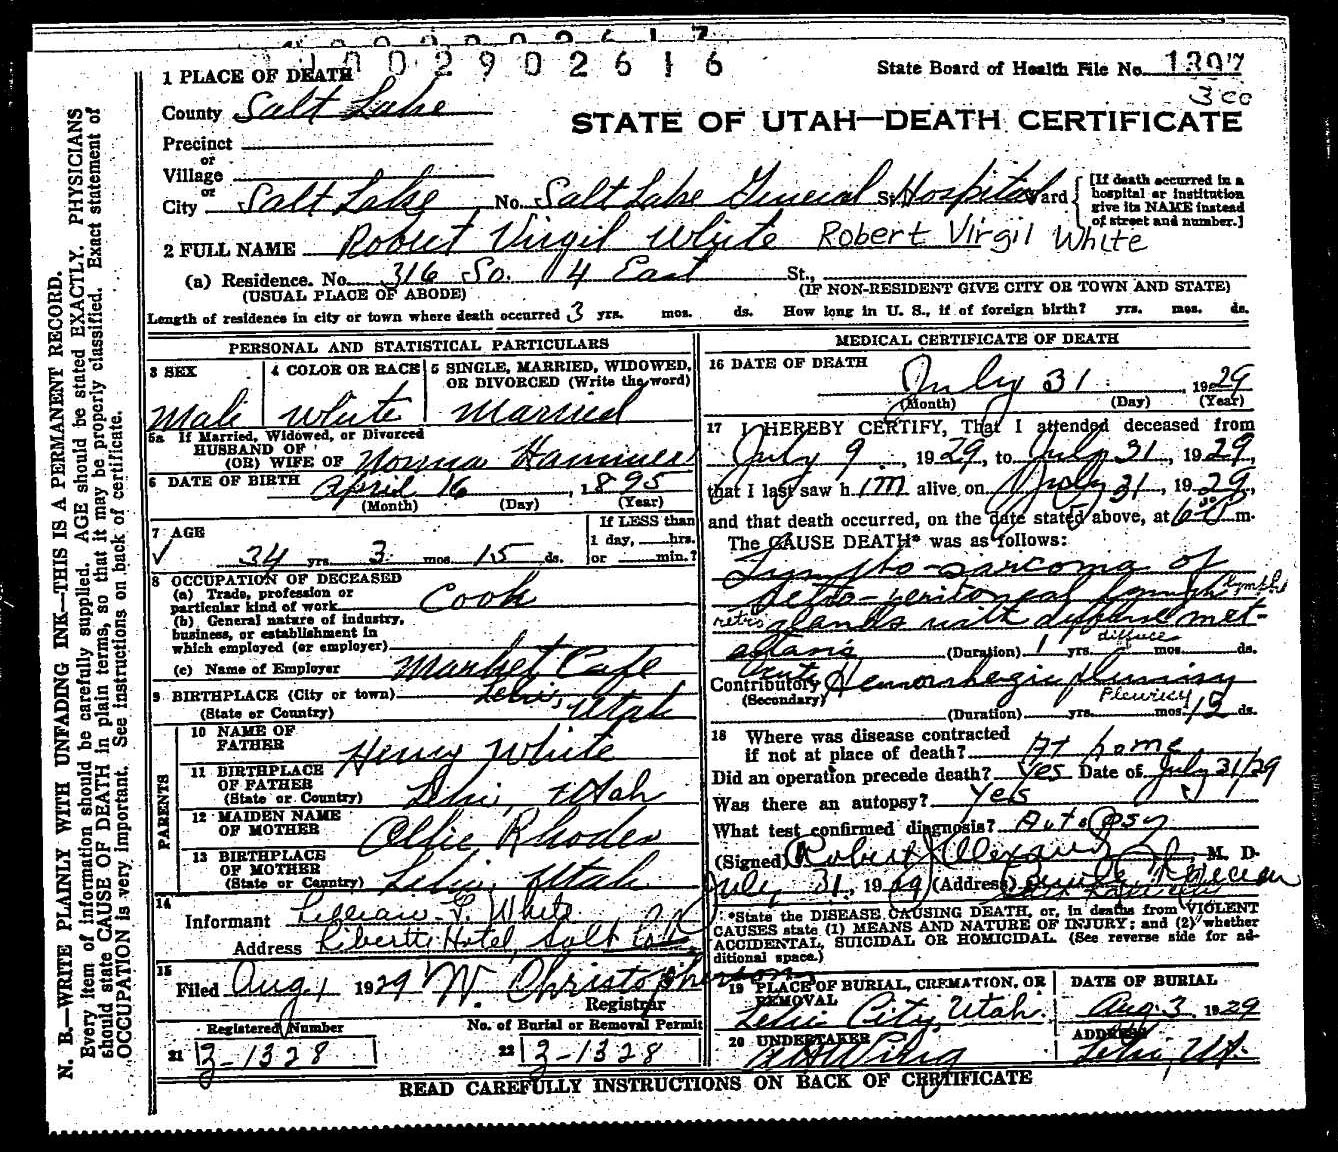 1 1 0 0 2 9 0 2 6 1 6
1 PLACE OF DEATH
State Board of Health File No. 1397
300
County Salt Lake
STATE OF UTAH—DEATH CERTIFICATE
Precinct
or
Village
or
City Salt Lake No. Salt Lake General St. Hospital Ward
[If death occurred in a
hospital or institution
give its NAME instead
of street and number.]
2 FULL NAME Robert Virgil White Robert Virgil White
(a) Residence. No. 316 So. 4 East St.,
(USUAL PLACE OF ABODE) (IF NON-RESIDENT GIVE CITY OR TOWN AND STATE)
Length of residence in city or town where death occurred 3 yrs. mos. ds. How long in U. S., if of foreign birth? yrs. mos. ds.
PERSONAL AND STATISTICAL PARTICULARS
3 SEX Male
4 COLOR OR RACE White
5 SINGLE, MARRIED, WIDOWED,
OR DIVORCED (Write the word)
Married
5a If Married, Widowed, or Divorced
HUSBAND OF
(OR) WIFE OF Norma Hammer
6 DATE OF BIRTH April 16, 1895
(Month) (Day) (Year)
7 AGE
34 yrs. 3 mos. 15 ds.
If LESS than
1 day, hrs.
or min.?
8 OCCUPATION OF DECEASED
(a) Trade, profession or
particular kind of work Cook
(b) General nature of industry,
business, or establishment in
which employed (or employer)
(c) Name of Employer Market Cafe
9 BIRTHPLACE (City or town) Lehi,
(State or Country) Utah
PARENTS
10 NAME OF
FATHER Henry White
11 BIRTHPLACE
OF FATHER
(State or Country) Lehi, Utah
12 MAIDEN NAME
OF MOTHER Ollie Rhodes
13 BIRTHPLACE
OF MOTHER
(State or Country) Lehi, Utah
14
Informant Lillian White
Address Hotel, Salt Lake
15
Filed Aug 1 1929 W. Christopherson
Registrar
Registered Number
21 3-1328
No. of Burial or Removal Permit
22 3-1328
MEDICAL CERTIFICATE OF DEATH
16 DATE OF DEATH
July 31, 1929
(Month) (Day) (Year)
17 I HEREBY CERTIFY, That I attended deceased from
July 9, 1929, to July 31, 1929,
that I last saw him alive on July 31, 1929,
and that death occurred, on the date stated above, at m.
The CAUSE DEATH* was as follows:
Lympho-sarcoma of
Retro-peritoneal lymph lymph
retro glands with diffuse met-
astasis diffuse
(Duration) 1 yrs. mos. ds.
Contributory Hemorrhagic pleurisy
(Secondary) Pleurisy
(Duration) yrs. mos. 12 ds.
18 Where was disease contracted
if not at place of death? At home
Did an operation precede death? Yes Date of July 31/29
Was there an autopsy? Yes
What test confirmed diagnosis? Autopsy
(Signed) Robert Alexander, M. D.
July 31, 1929 (Address)
*State the DISEASE CAUSING DEATH, or, in deaths from VIOLENT
CAUSES state (1) MEANS AND NATURE OF INJURY; and (2) whether
ACCIDENTAL, SUICIDAL OR HOMICIDAL. (See reverse side for ad-
ditional space.)
19 PLACE OF BURIAL, CREMATION, OR
REMOVAL
Lehi City, Utah.
DATE OF BURIAL
Aug. 3 1929
20 UNDERTAKER
ADDRESS
Lehi, Ut.
READ CAREFULLY INSTRUCTIONS ON BACK OF CERTIFICATE
N. B.—WRITE PLAINLY WITH UNFADING INK—THIS IS A PERMANENT RECORD.
Every item of information should be carefully supplied. AGE should be stated EXACTLY. PHYSICIANS
should state CAUSE OF DEATH in plain terms, so that it may be properly classified. Exact statement of
OCCUPATION is very important. See instructions on back of certificate.